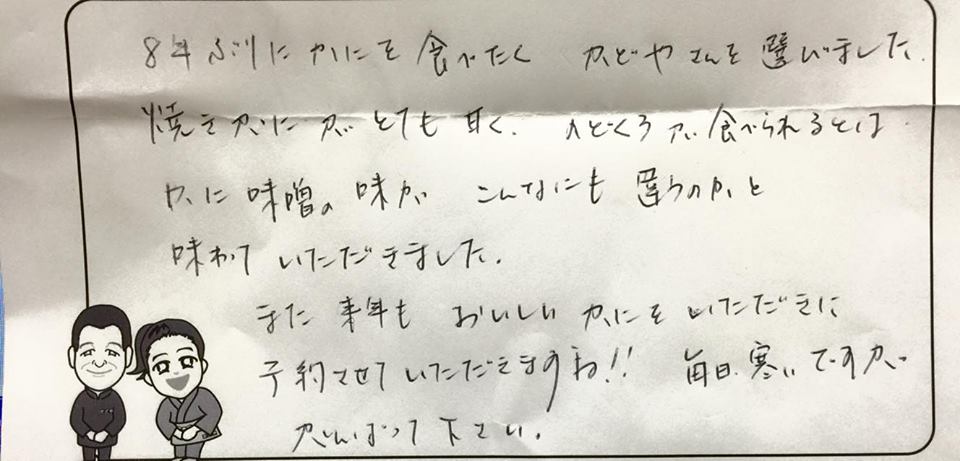 8年ぶりに かにを 食べたく かどやさんを 選びました.
焼きガニが とても 甘く. のどくろが 食べられるとは
かに味噌の味が こんなにも 違うのかと
味わっていただきました.
また 来年も おいしい かにを いただきに
予約させていただきますね!! 毎日. 寒いですが
がんばって下さい.